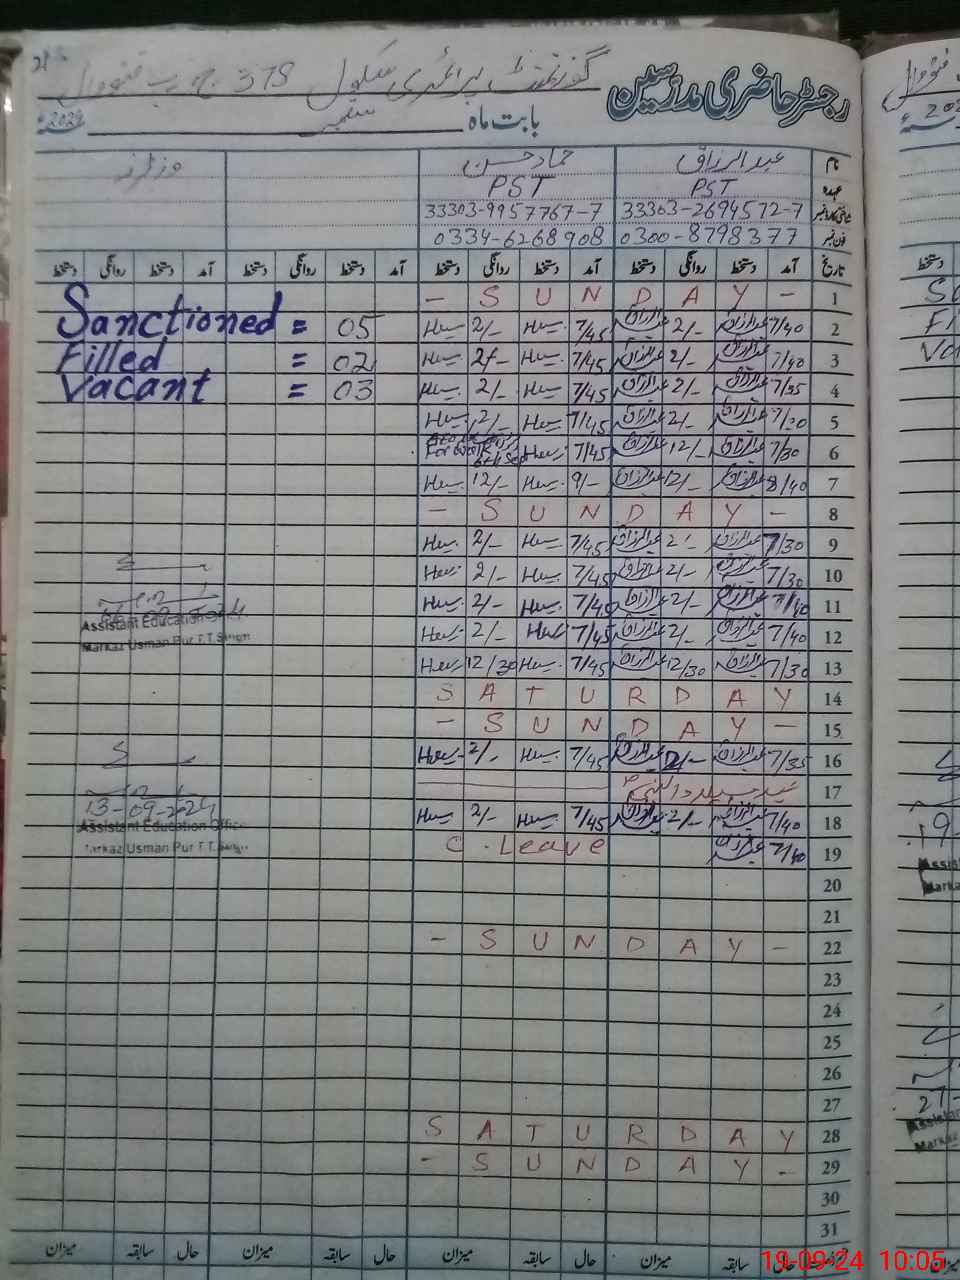 رجسٹر حاضری مدرسین گورنمنٹ پرائمری سکول 378 ج ب
بابت ماہ ستمبر 2024ء
نام عبدالرزاق حماد حسن وزٹرز
عہدہ PST PST
شناختی کارڈ نمبر 33303-2694572-7 33303-9957767-7
فون نمبر 0300-8798377 0334-6268908
تاریخ آمد دستخط روانگی دستخط آمد دستخط روانگی دستخط آمد دستخط روانگی دستخط آمد دستخط روانگی دستخط
1 - SUNDAY -
Sanctioned = 05
2 7/40 عبدالرزاق 2/- عبدالرزاق 7/45 2/-
Filled = 02
3 7/40 عبدالرزاق 2/- عبدالرزاق 7/45 2/-
Vacant = 03
4 7/35 عبدالرزاق 2/- عبدالرزاق 7/45 2/-
5 7/30 عبدالرزاق 2/- عبدالرزاق 7/45 2/-
6 7/30 عبدالرزاق 12/- عبدالرزاق 7/45 For Walk 6th Sep
7 8/40 عبدالرزاق 12/- عبدالرزاق 9/- 12/-
8 - SUNDAY -
9 7/30 عبدالرزاق 2/- عبدالرزاق 7/45 2/-
10 7/30 عبدالرزاق 2/- عبدالرزاق 7/45 2/-
11 7/40 عبدالرزاق 2/- عبدالرزاق 7/40 2/-
Assistant Education
12 7/40 عبدالرزاق 2/- عبدالرزاق 7/45 2/-
Markaz Usman Pur T.T.Singh
13 7/30 عبدالرزاق 12/30 عبدالرزاق 7/45 12/30
14 SATURDAY
15 - SUNDAY -
16 7/35 عبدالرزاق 2/- عبدالرزاق 7/45 2/-
17 عید میلاد النبی
13-09-2024
18 7/40 عبدالرزاق 2/- عبدالرزاق 7/45 2/-
Assistant Education Office
19 7/40 عبدالرزاق C. Leave
Markaz Usman Pur T.T.
20
21
22 - SUNDAY -
23
24
25
26
27
28 SATURDAY
29 - SUNDAY -
30
31
حال سابقہ میزان حال سابقہ میزان حال سابقہ میزان حال سابقہ میزان
19-09-24 10:05